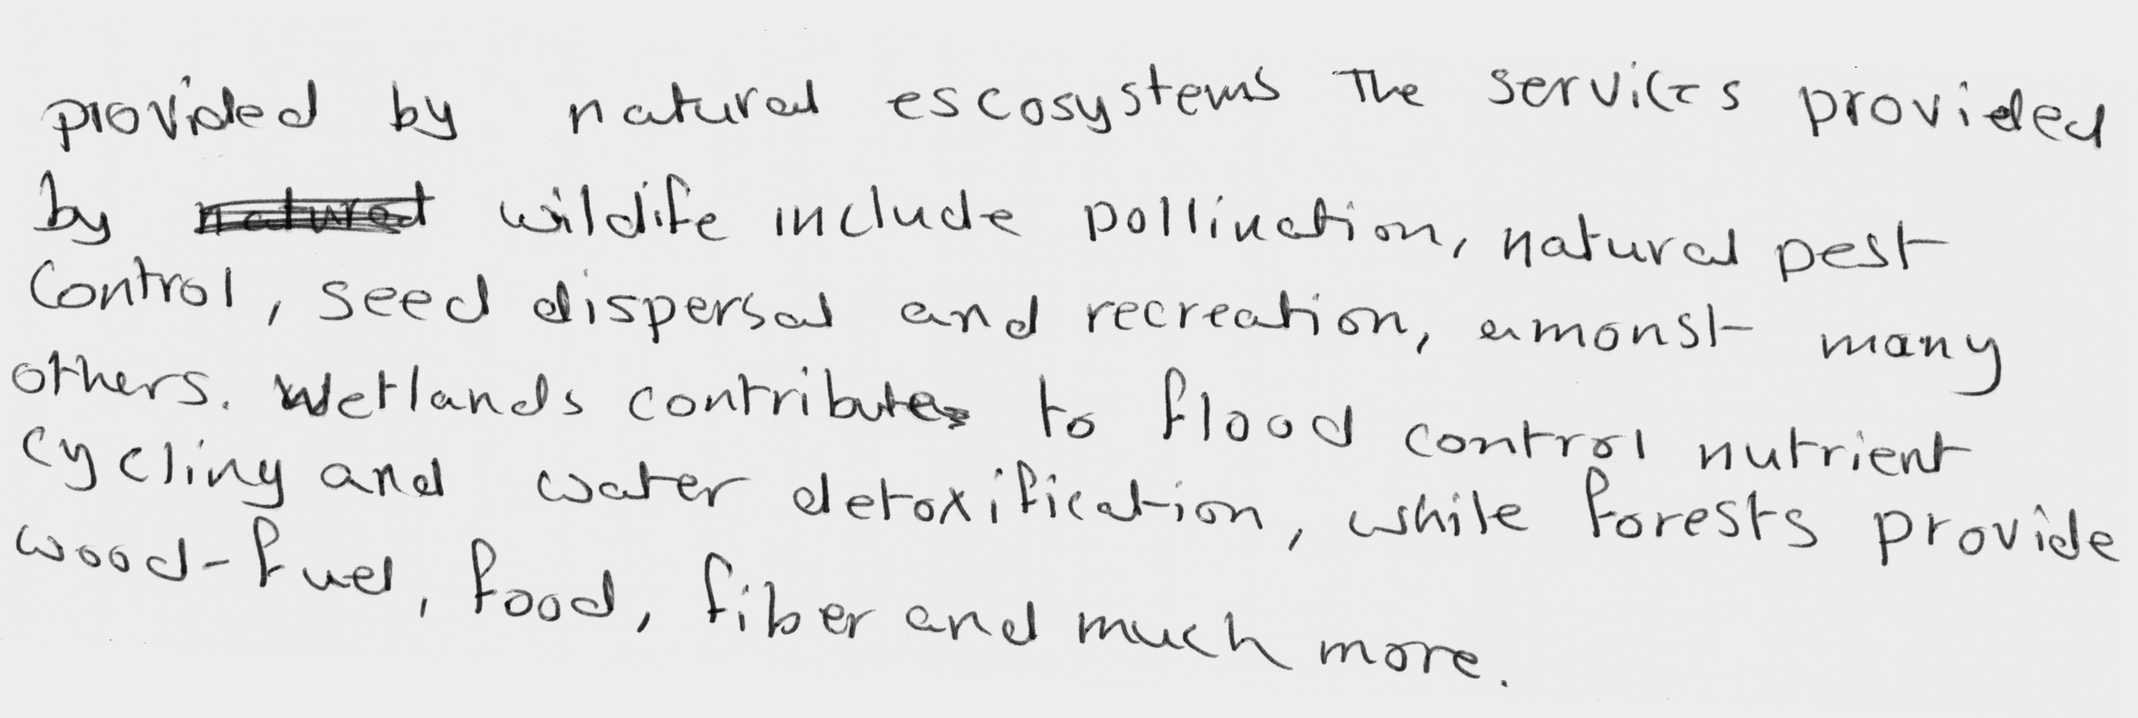 provided by natural escosystems The services provided
by wildife include pollination, natural pest
Control, seed dispersal and recreation, amonst many
others. Wetlands contributes to flood control nutrient
cycling and water detoxification, while forests provide
wood-fuel, food, fiber and much more.